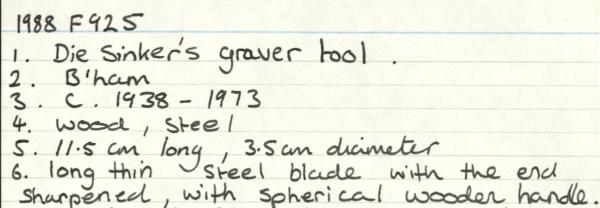 1988 F925
1. Die Sinker's graver tool.
2. B'ham
3. C. 1938 - 1973
4. wood, steel
5. 11.5 cm long, 3.5 cm diameter
6. long thin steel blade with the end
sharpened, with spherical wooden handle.